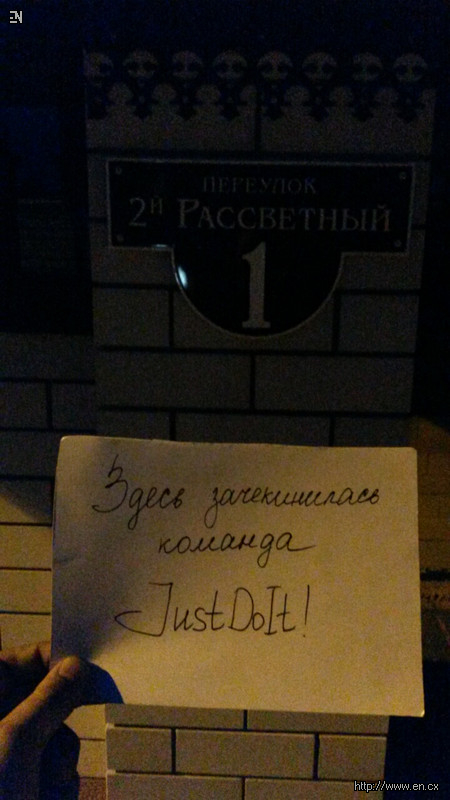 EN
ПЕРЕУЛОК
2й РАССВЕТНЫЙ
1
Здесь зачекинилась
команда
JustDoIt!
http://www.en.cx